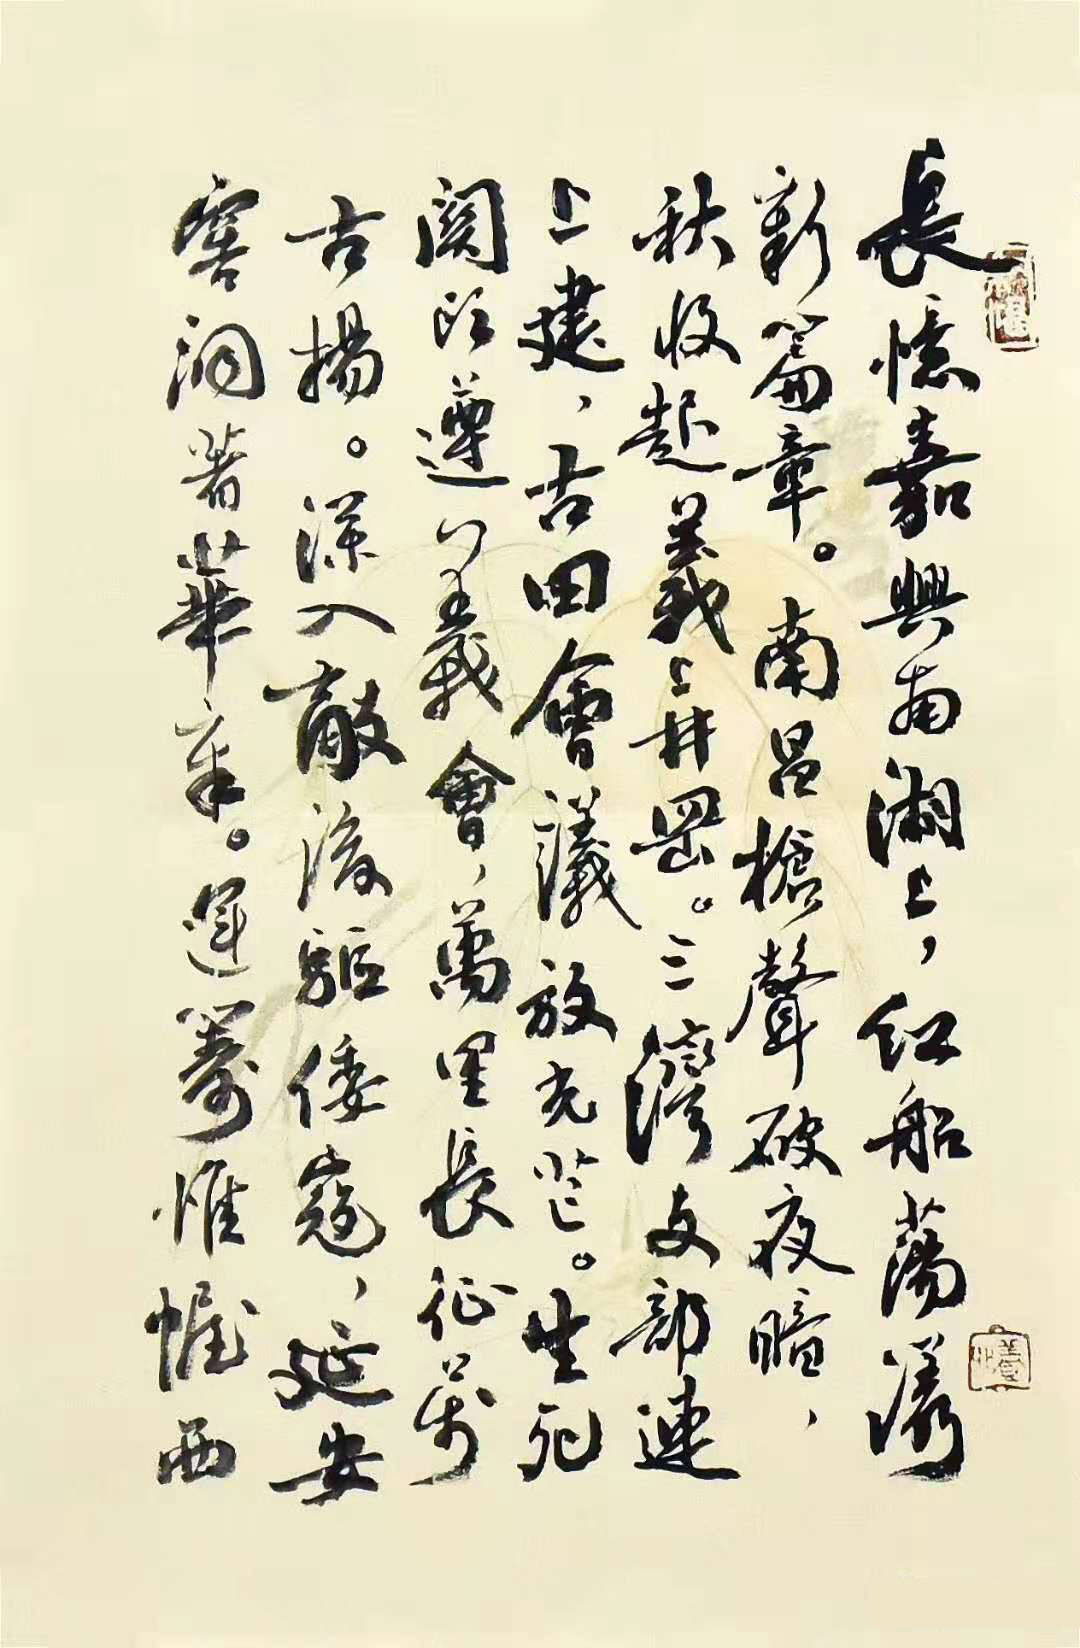 長憶嘉興南湖上，紅船蕩漾
新篇章。南昌槍聲破夜暗，
秋收起義上井岡。三灣支部連
上建，古田會議放光芒。生死
関頭遵义義會，萬里長征萬
古揚。深入敵後驅倭寇，延安
窑洞著華章。運籌惟幄西